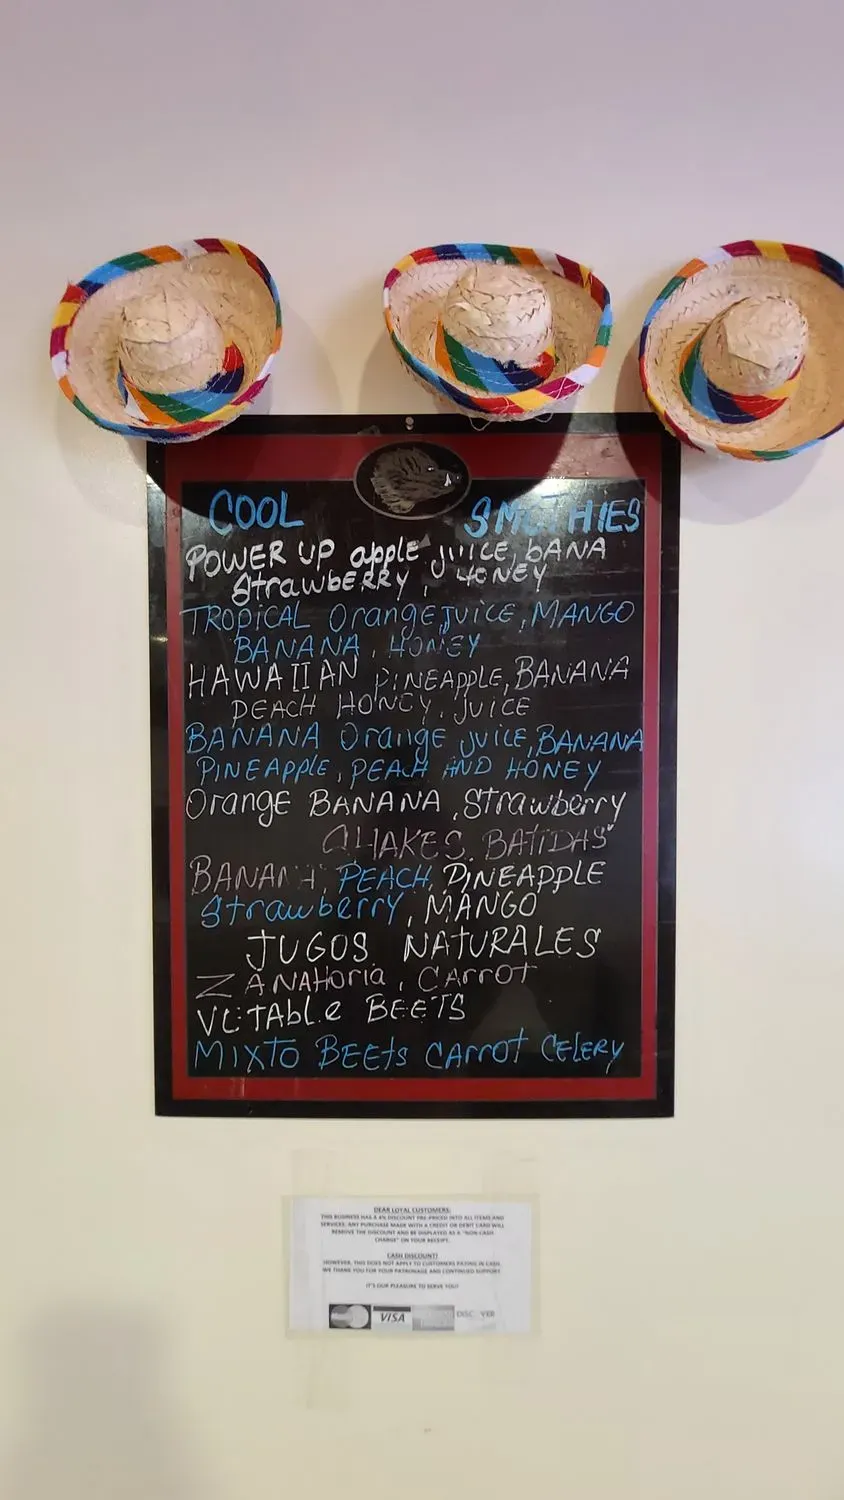 COOL SMOTHIES
POWER UP apple juice, bANA
Strawberry, HONEY
TROPICAL Orange juice, MANGO
BANANA, HONEY
HAWAIIAN PINEAPPLE, BANANA
PEACH HONEY, JUICE
BANANA Orange juice, BANANA
PINEAPPLE, PEACH AND HONEY
Orange BANANA, Strawberry
SHAKES, BATIDAS
BANANA, PEACH, PINEAPPLE
Strawberry, MANGO
JUGOS NATURALES
ZANAHoria, CARROT
VETAbLe BEETS
MIXTO BEETs CARRoT CELERY
DEAR LOYAL CUSTOMERS:
THIS BUSINESS HAS A 4% DISCOUNT PRE-PRICED INTO ALL ITEMS AND
SERVICES. ANY PURCHASE MADE WITH A CREDIT OR DEBIT CARD WILL
REMOVE THE DISCOUNT AND BE DISPLAYED AS A "NON-CASH
CHARGE" ON YOUR RECEIPT.
CASH DISCOUNT!
HOWEVER, THIS DOES NOT APPLY TO CUSTOMERS PAYING IN CASH.
WE THANK YOU FOR YOUR PATRONAGE AND CONTINUED SUPPORT.
IT'S OUR PLEASURE TO SERVE YOU!
VISA DISCOVER